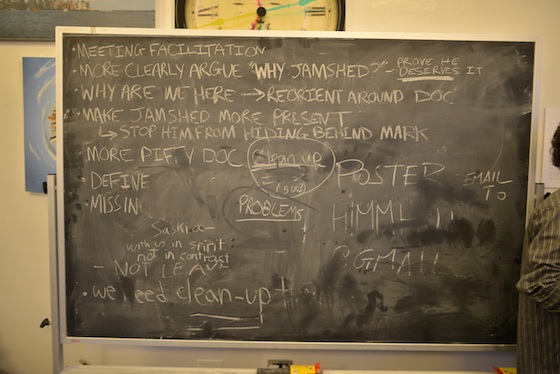 • MEETING FACILITATION
• MORE CLEARLY ARGUE "WHY JAMSHED?" - PROVE HE DESERVES IT
• WHY ARE WE HERE → REORIENT AROUND DOC
• MAKE JAMSHED MORE PRESENT
↳ STOP HIM FROM HIDING BEHIND MARK
MORE PIFFY DOC
Clean up
• DEFINE
• MISSIN
PROBLEMS
POSTER
EMAIL TO
Saskia -
with us in spirit
not in contract
- NOT LEAVE
• we need clean-up